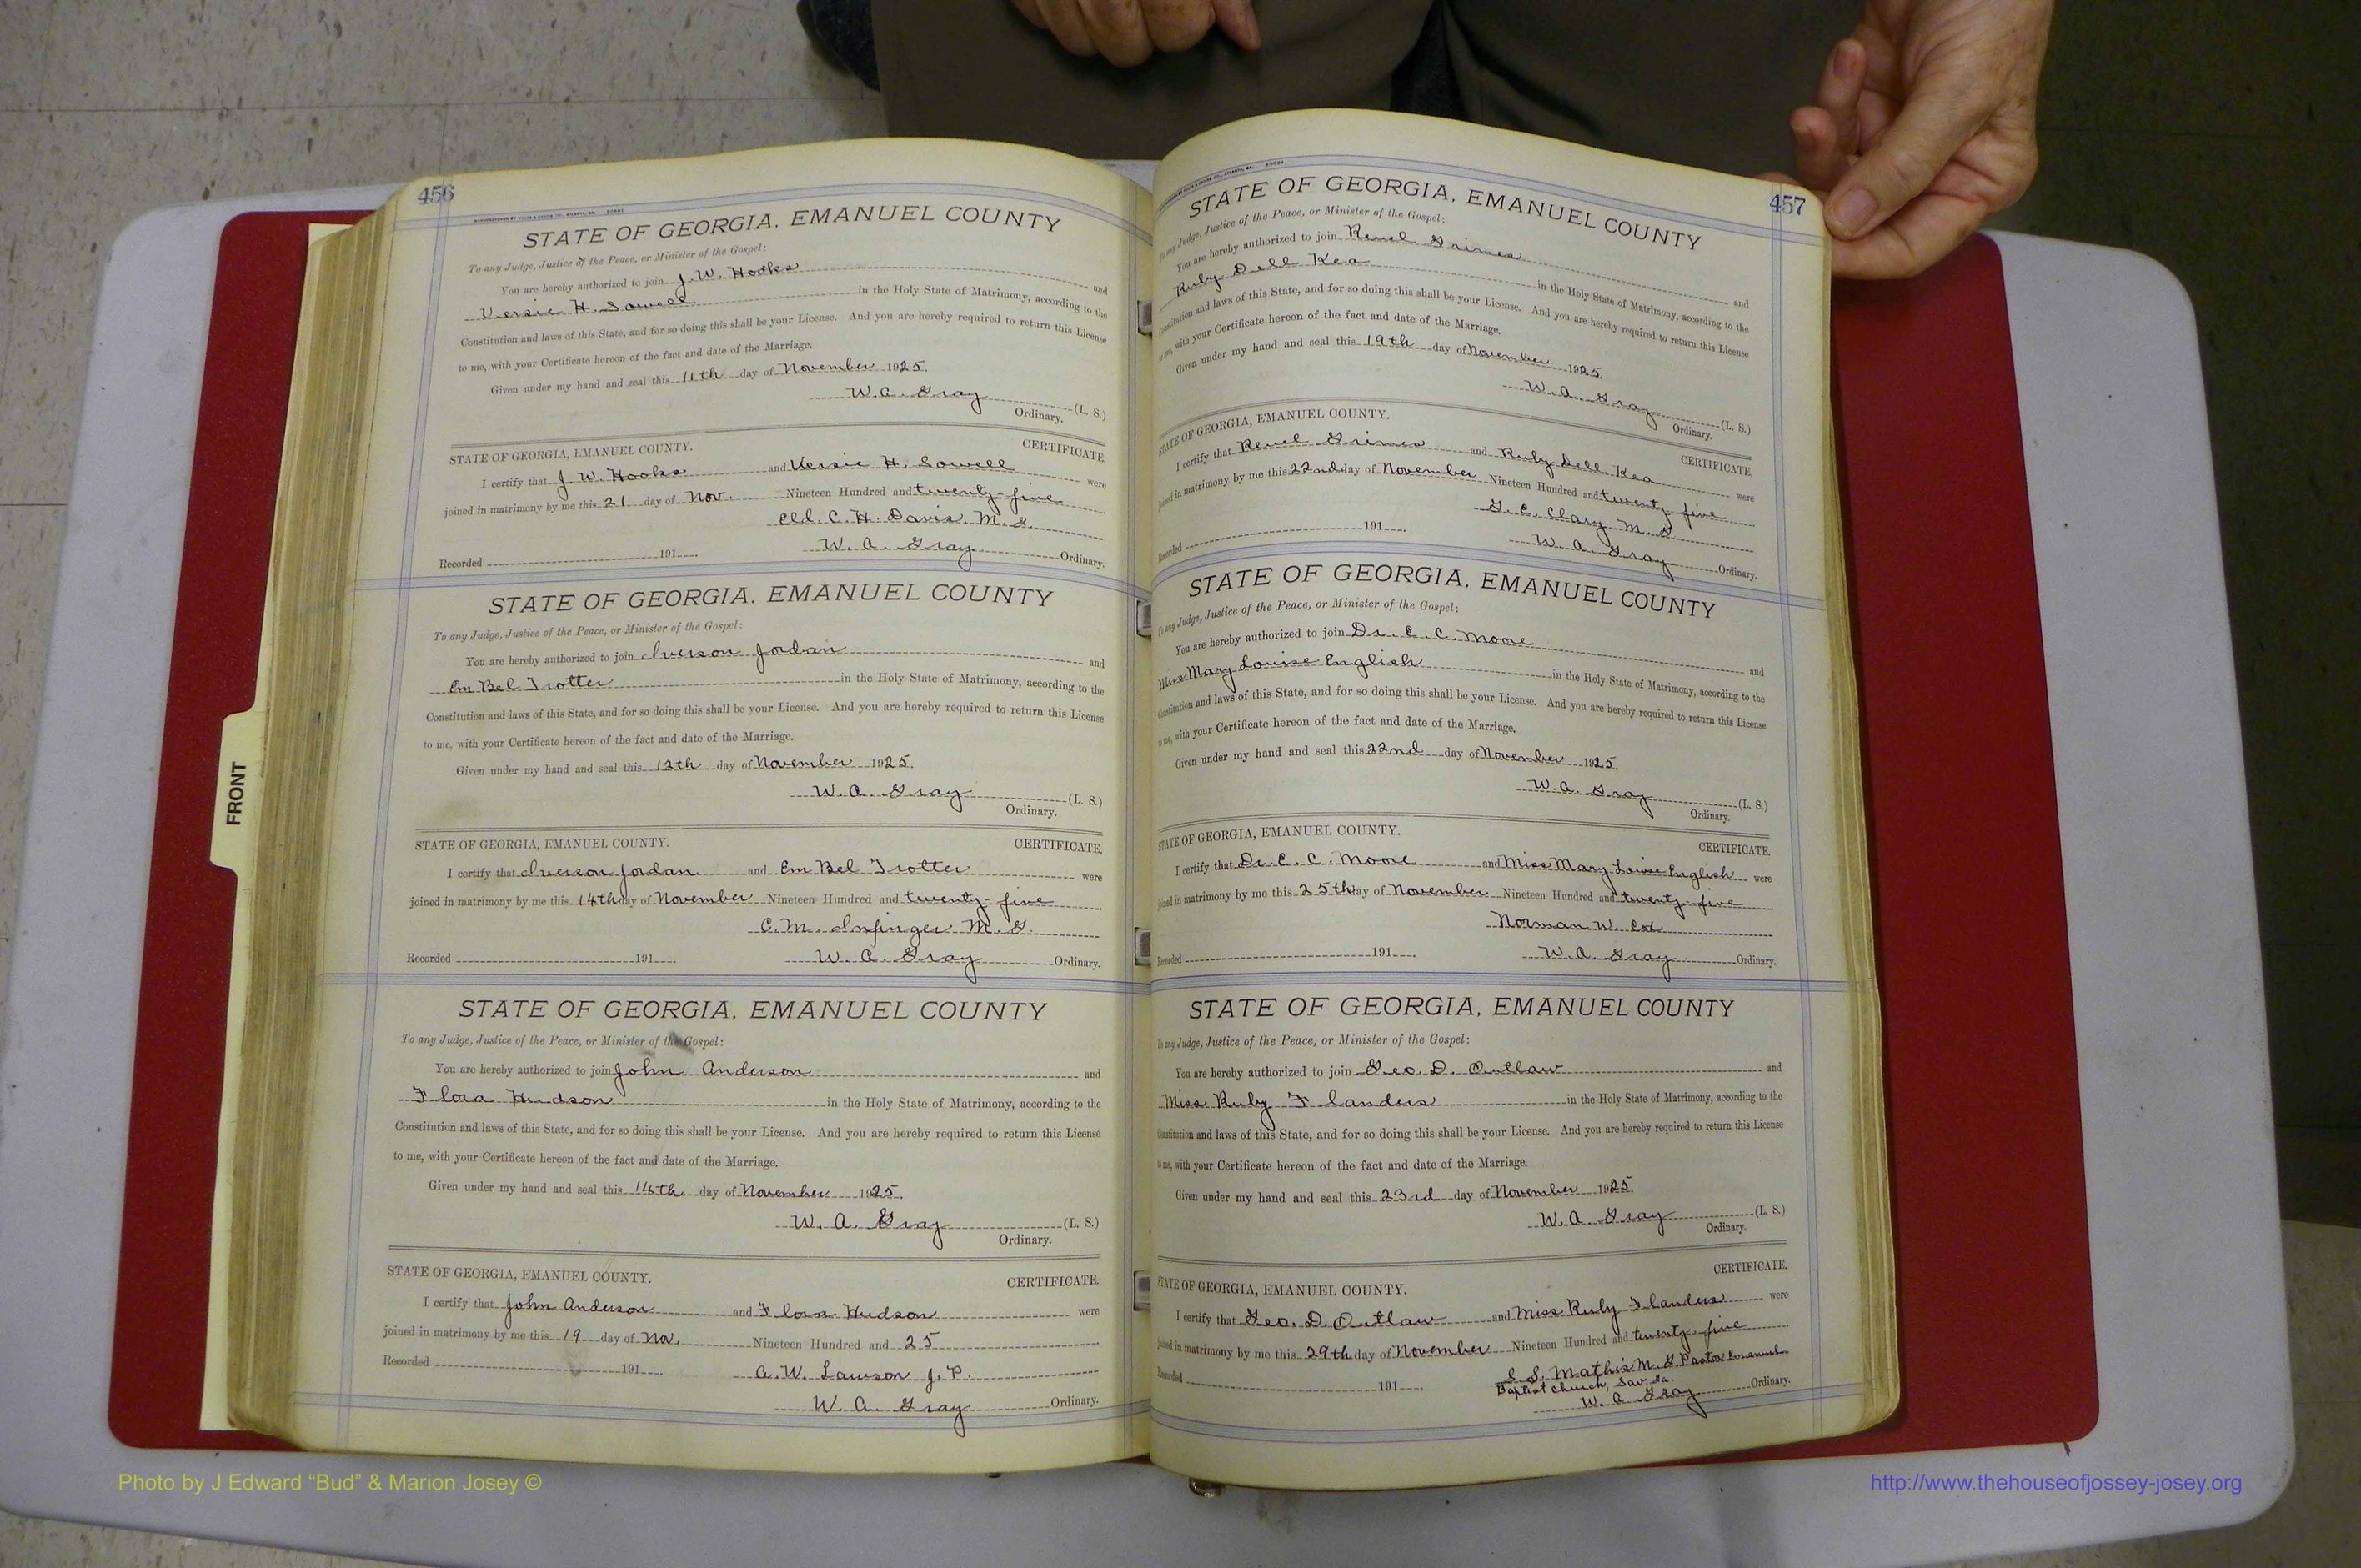 456
STATE OF GEORGIA, EMANUEL COUNTY
To any Judge, Justice of the Peace, or Minister of the Gospel:
You are hereby authorized to join J. W. Hooks and
Versie H. Sowell in the Holy State of Matrimony, according to the
Constitution and laws of this State, and for so doing this shall be your License. And you are hereby required to return this License
to me, with your Certificate hereon of the fact and date of the Marriage.
Given under my hand and seal this 11th day of November 1925.
W. A. Gray (L. S.)
Ordinary.
STATE OF GEORGIA, EMANUEL COUNTY. CERTIFICATE.
I certify that J. W. Hooks and Versie H. Sowell were
joined in matrimony by me this 21 day of Nov. Nineteen Hundred and twenty-five
Eld. C. H. Davis M. G.
Recorded 191 W. A. Gray Ordinary.
STATE OF GEORGIA, EMANUEL COUNTY
To any Judge, Justice of the Peace, or Minister of the Gospel:
You are hereby authorized to join Iverson Jordan and
Em Bel Trotter in the Holy State of Matrimony, according to the
Constitution and laws of this State, and for so doing this shall be your License. And you are hereby required to return this License
to me, with your Certificate hereon of the fact and date of the Marriage.
Given under my hand and seal this 12th day of November 1925.
W. A. Gray (L. S.)
Ordinary.
STATE OF GEORGIA, EMANUEL COUNTY. CERTIFICATE.
I certify that Iverson Jordan and Em Bel Trotter were
joined in matrimony by me this 14th day of November Nineteen Hundred and twenty-five
C. M. Infinger M. G.
Recorded 191 W. A. Gray Ordinary.
STATE OF GEORGIA, EMANUEL COUNTY
To any Judge, Justice of the Peace, or Minister of the Gospel:
You are hereby authorized to join John Anderson and
Flora Hudson in the Holy State of Matrimony, according to the
Constitution and laws of this State, and for so doing this shall be your License. And you are hereby required to return this License
to me, with your Certificate hereon of the fact and date of the Marriage.
Given under my hand and seal this 14th day of November 1925.
W. A. Gray (L. S.)
Ordinary.
STATE OF GEORGIA, EMANUEL COUNTY. CERTIFICATE.
I certify that John Anderson and Flora Hudson were
joined in matrimony by me this 19 day of Nov. Nineteen Hundred and 25
Recorded 191 A. W. Lawson J. P.
W. A. Gray Ordinary.
457
STATE OF GEORGIA, EMANUEL COUNTY
To any Judge, Justice of the Peace, or Minister of the Gospel:
You are hereby authorized to join Revel Grimes and
Ruby Dell Kea in the Holy State of Matrimony, according to the
Constitution and laws of this State, and for so doing this shall be your License. And you are hereby required to return this License
to me, with your Certificate hereon of the fact and date of the Marriage.
Given under my hand and seal this 19th day of November 1925.
W. A. Gray (L. S.)
Ordinary.
STATE OF GEORGIA, EMANUEL COUNTY. CERTIFICATE.
I certify that Revel Grimes and Ruby Dell Kea were
joined in matrimony by me this 22nd day of November Nineteen Hundred and twenty five
G. C. Clary M. G
Recorded 191 W. A. Gray Ordinary.
STATE OF GEORGIA, EMANUEL COUNTY
To any Judge, Justice of the Peace, or Minister of the Gospel:
You are hereby authorized to join Dr. E. C. Moore and
Miss Mary Louise English in the Holy State of Matrimony, according to the
Constitution and laws of this State, and for so doing this shall be your License. And you are hereby required to return this License
to me, with your Certificate hereon of the fact and date of the Marriage.
Given under my hand and seal this 22nd day of November 1925.
W. A. Gray (L. S.)
Ordinary.
STATE OF GEORGIA, EMANUEL COUNTY. CERTIFICATE.
I certify that Dr. E. C. Moore and Miss Mary Louise English were
joined in matrimony by me this 25th day of November Nineteen Hundred and twenty-five
Norman W. Cox
Recorded 191 W. A. Gray Ordinary.
STATE OF GEORGIA, EMANUEL COUNTY
To any Judge, Justice of the Peace, or Minister of the Gospel:
You are hereby authorized to join Geo. D. Outlaw and
Miss Ruby Flanders in the Holy State of Matrimony, according to the
Constitution and laws of this State, and for so doing this shall be your License. And you are hereby required to return this License
to me, with your Certificate hereon of the fact and date of the Marriage.
Given under my hand and seal this 23rd day of November 1925.
W. A. Gray (L. S.)
Ordinary.
STATE OF GEORGIA, EMANUEL COUNTY. CERTIFICATE.
I certify that Geo. D. Outlaw and Miss Ruby Flanders were
joined in matrimony by me this 29th day of November Nineteen Hundred and twenty-five
S. S. Mathis M. G. Pastor Emanuel
Recorded 191 Baptist Church, Sav. Ga.
W. A. Gray Ordinary.
FRONT
Photo by J Edward “Bud” & Marion Josey ©
http://www.thehouseofjossey-josey.org